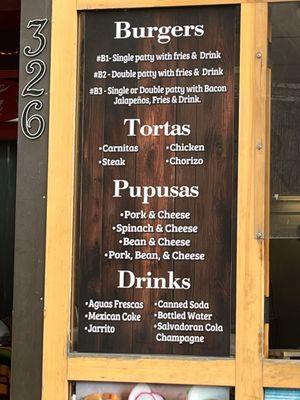 326
Burgers
#B1- Single patty with fries & Drink
#B2 - Double patty with fries & Drink
#B3 - Single or Double patty with Bacon
Jalapeños, Fries & Drink.
Tortas
•Carnitas •Chicken
•Steak •Chorizo
Pupusas
•Pork & Cheese
•Spinach & Cheese
•Bean & Cheese
•Pork, Bean, & Cheese
Drinks
•Aguas Frescas •Canned Soda
•Mexican Coke •Bottled Water
•Jarrito •Salvadoran Cola
Champagne